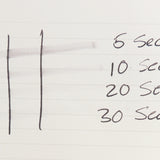 5 Sec
10 Sec
20 Se
30 Sec